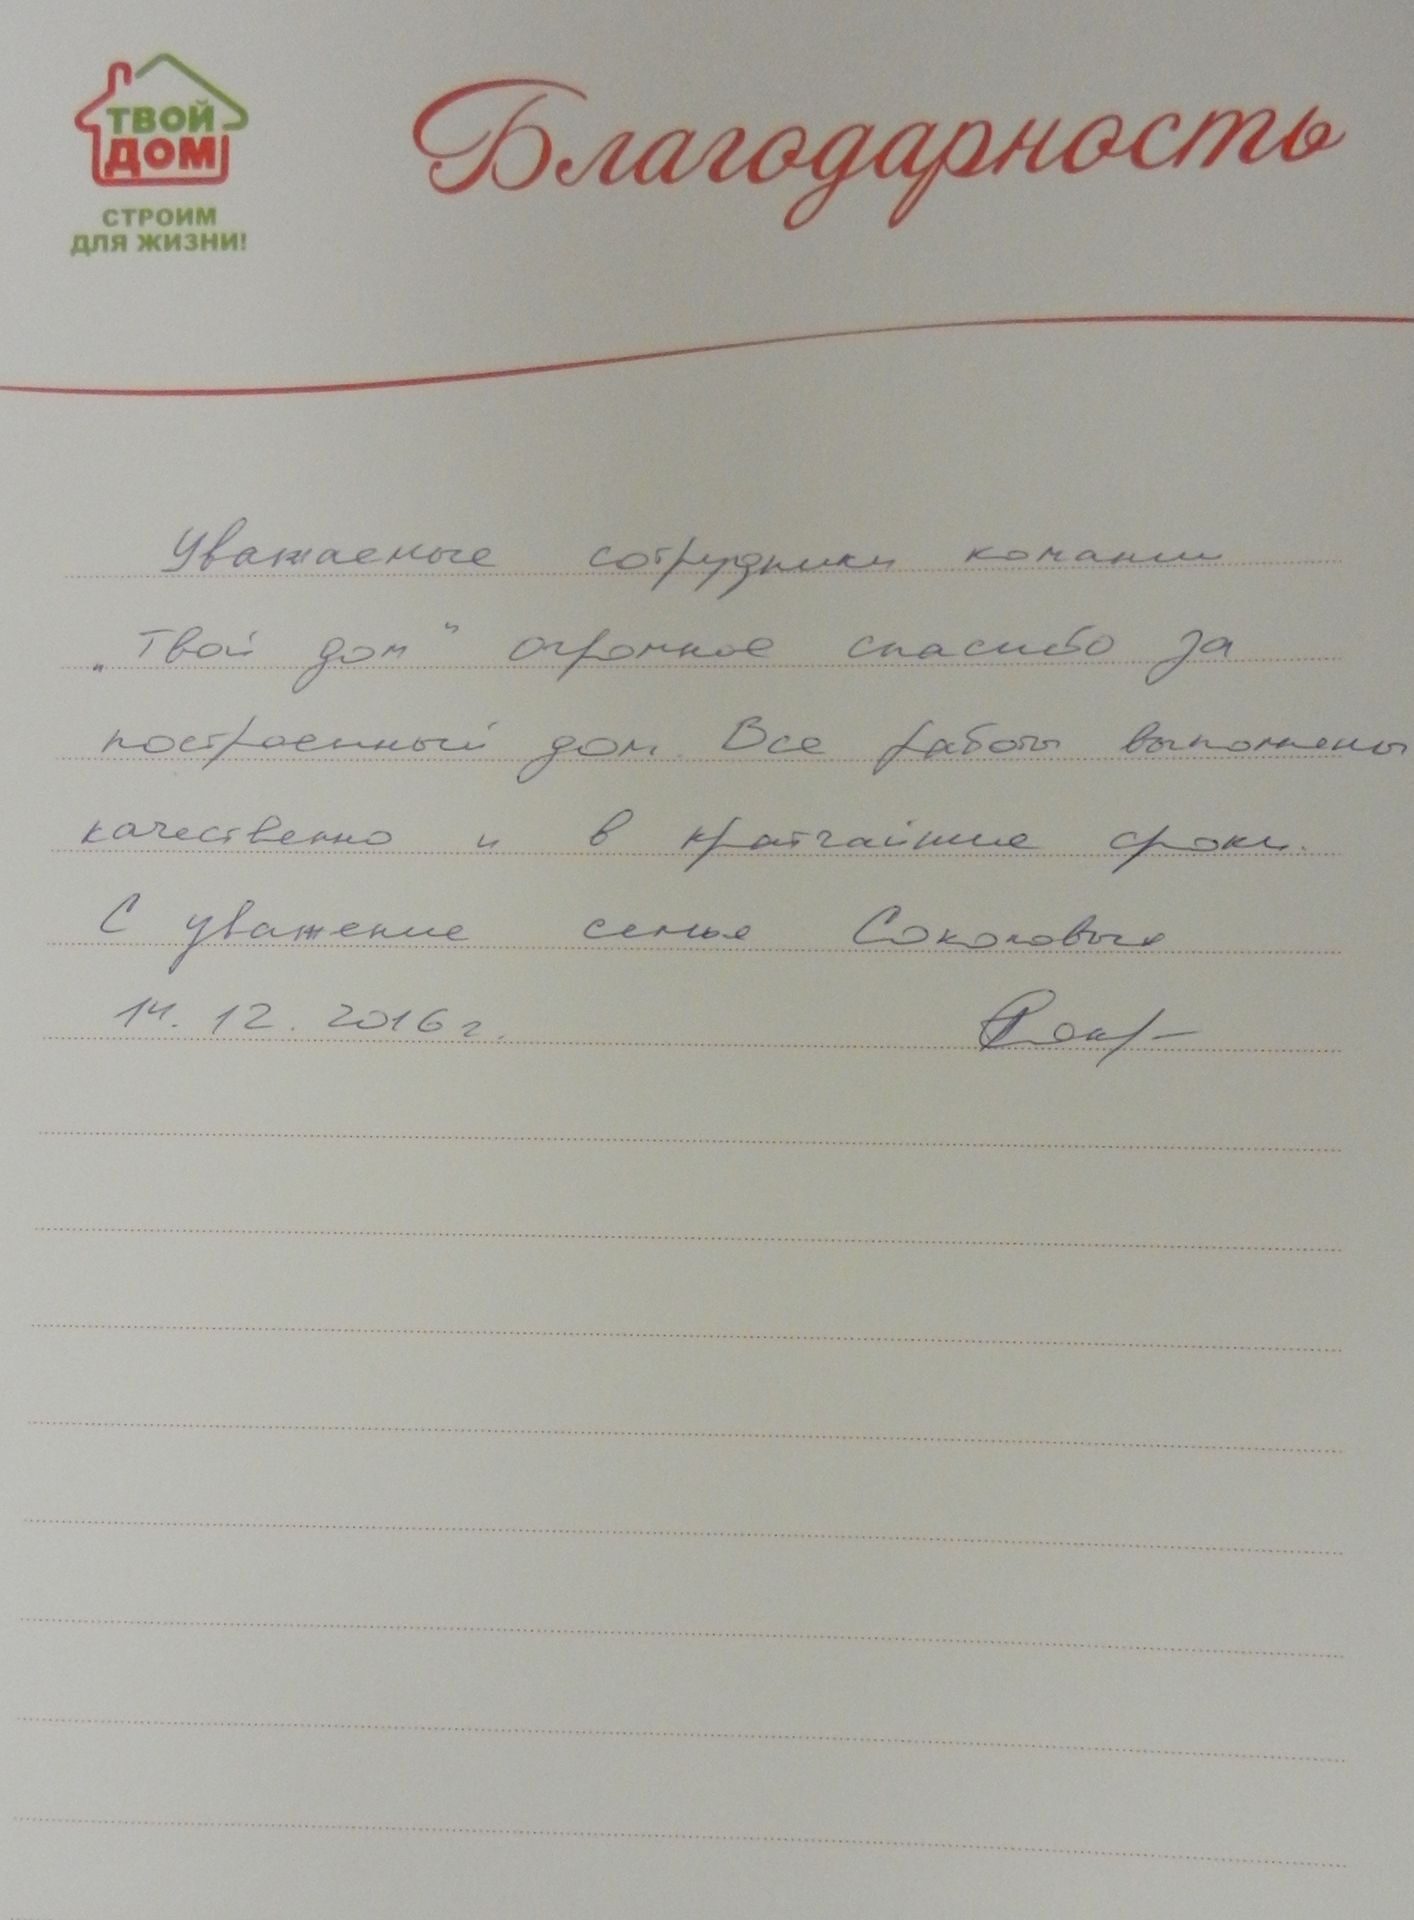 ТВОЙ
ДОМ
СТРОИМ
ДЛЯ ЖИЗНИ!
Благодарность
Уважаемые сотрудники компании
„Твой дом" огромное спасибо за
построенный дом. Все работы выполнены
качественно и в кратчайшие сроки.
С уважение семья Соколовых
14.12.2016г.